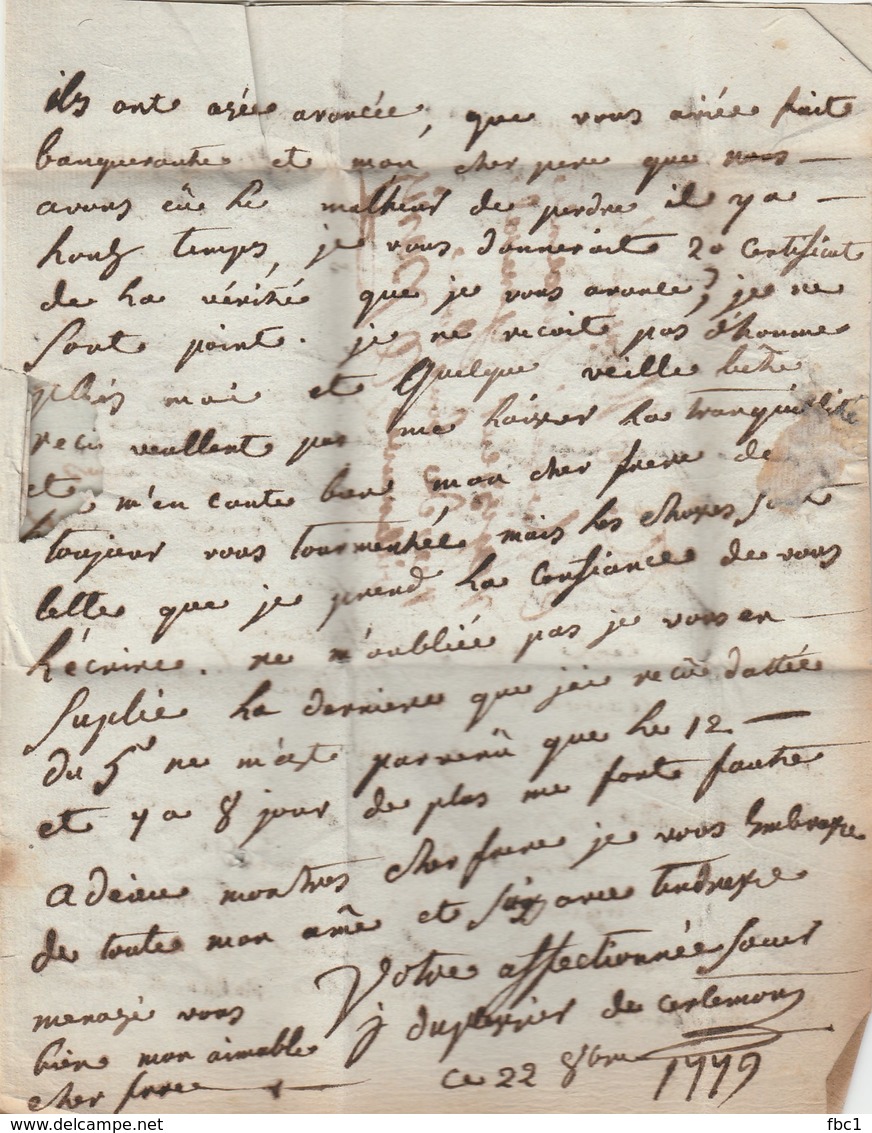 ils ont azée avancée, que vous aviée fait
banqueroute et mon cher pere que nous
avons eû le malheur de perdre il y a
long temps, je vous donnerait 20 certificat
de la vérité que je vous avance, je ne
sort point. je ne recoit pas d'homme
ches moi et quelque veille bette
veullent pas me laisser la tranquilité
et m'en coute bien mon cher frere de
toujour vous tourmentée mais les choses sont
telle que je prend la confiance de vous
l'écrire. ne m'oubliée pas je vous en
suplie la derniere que jai recûe dattée
du 5e ne m'est parvenû que le 12
et y a 8 jour de plus me font faute
adeieu mon tres cher frere je vous embrasse
de toute mon ame et suis avec tendresse
Votre affectionnée soeur
menagé vous
j duperrier de
bien mon aimable
cher frere
ce 22 8bre 1779
fbc1